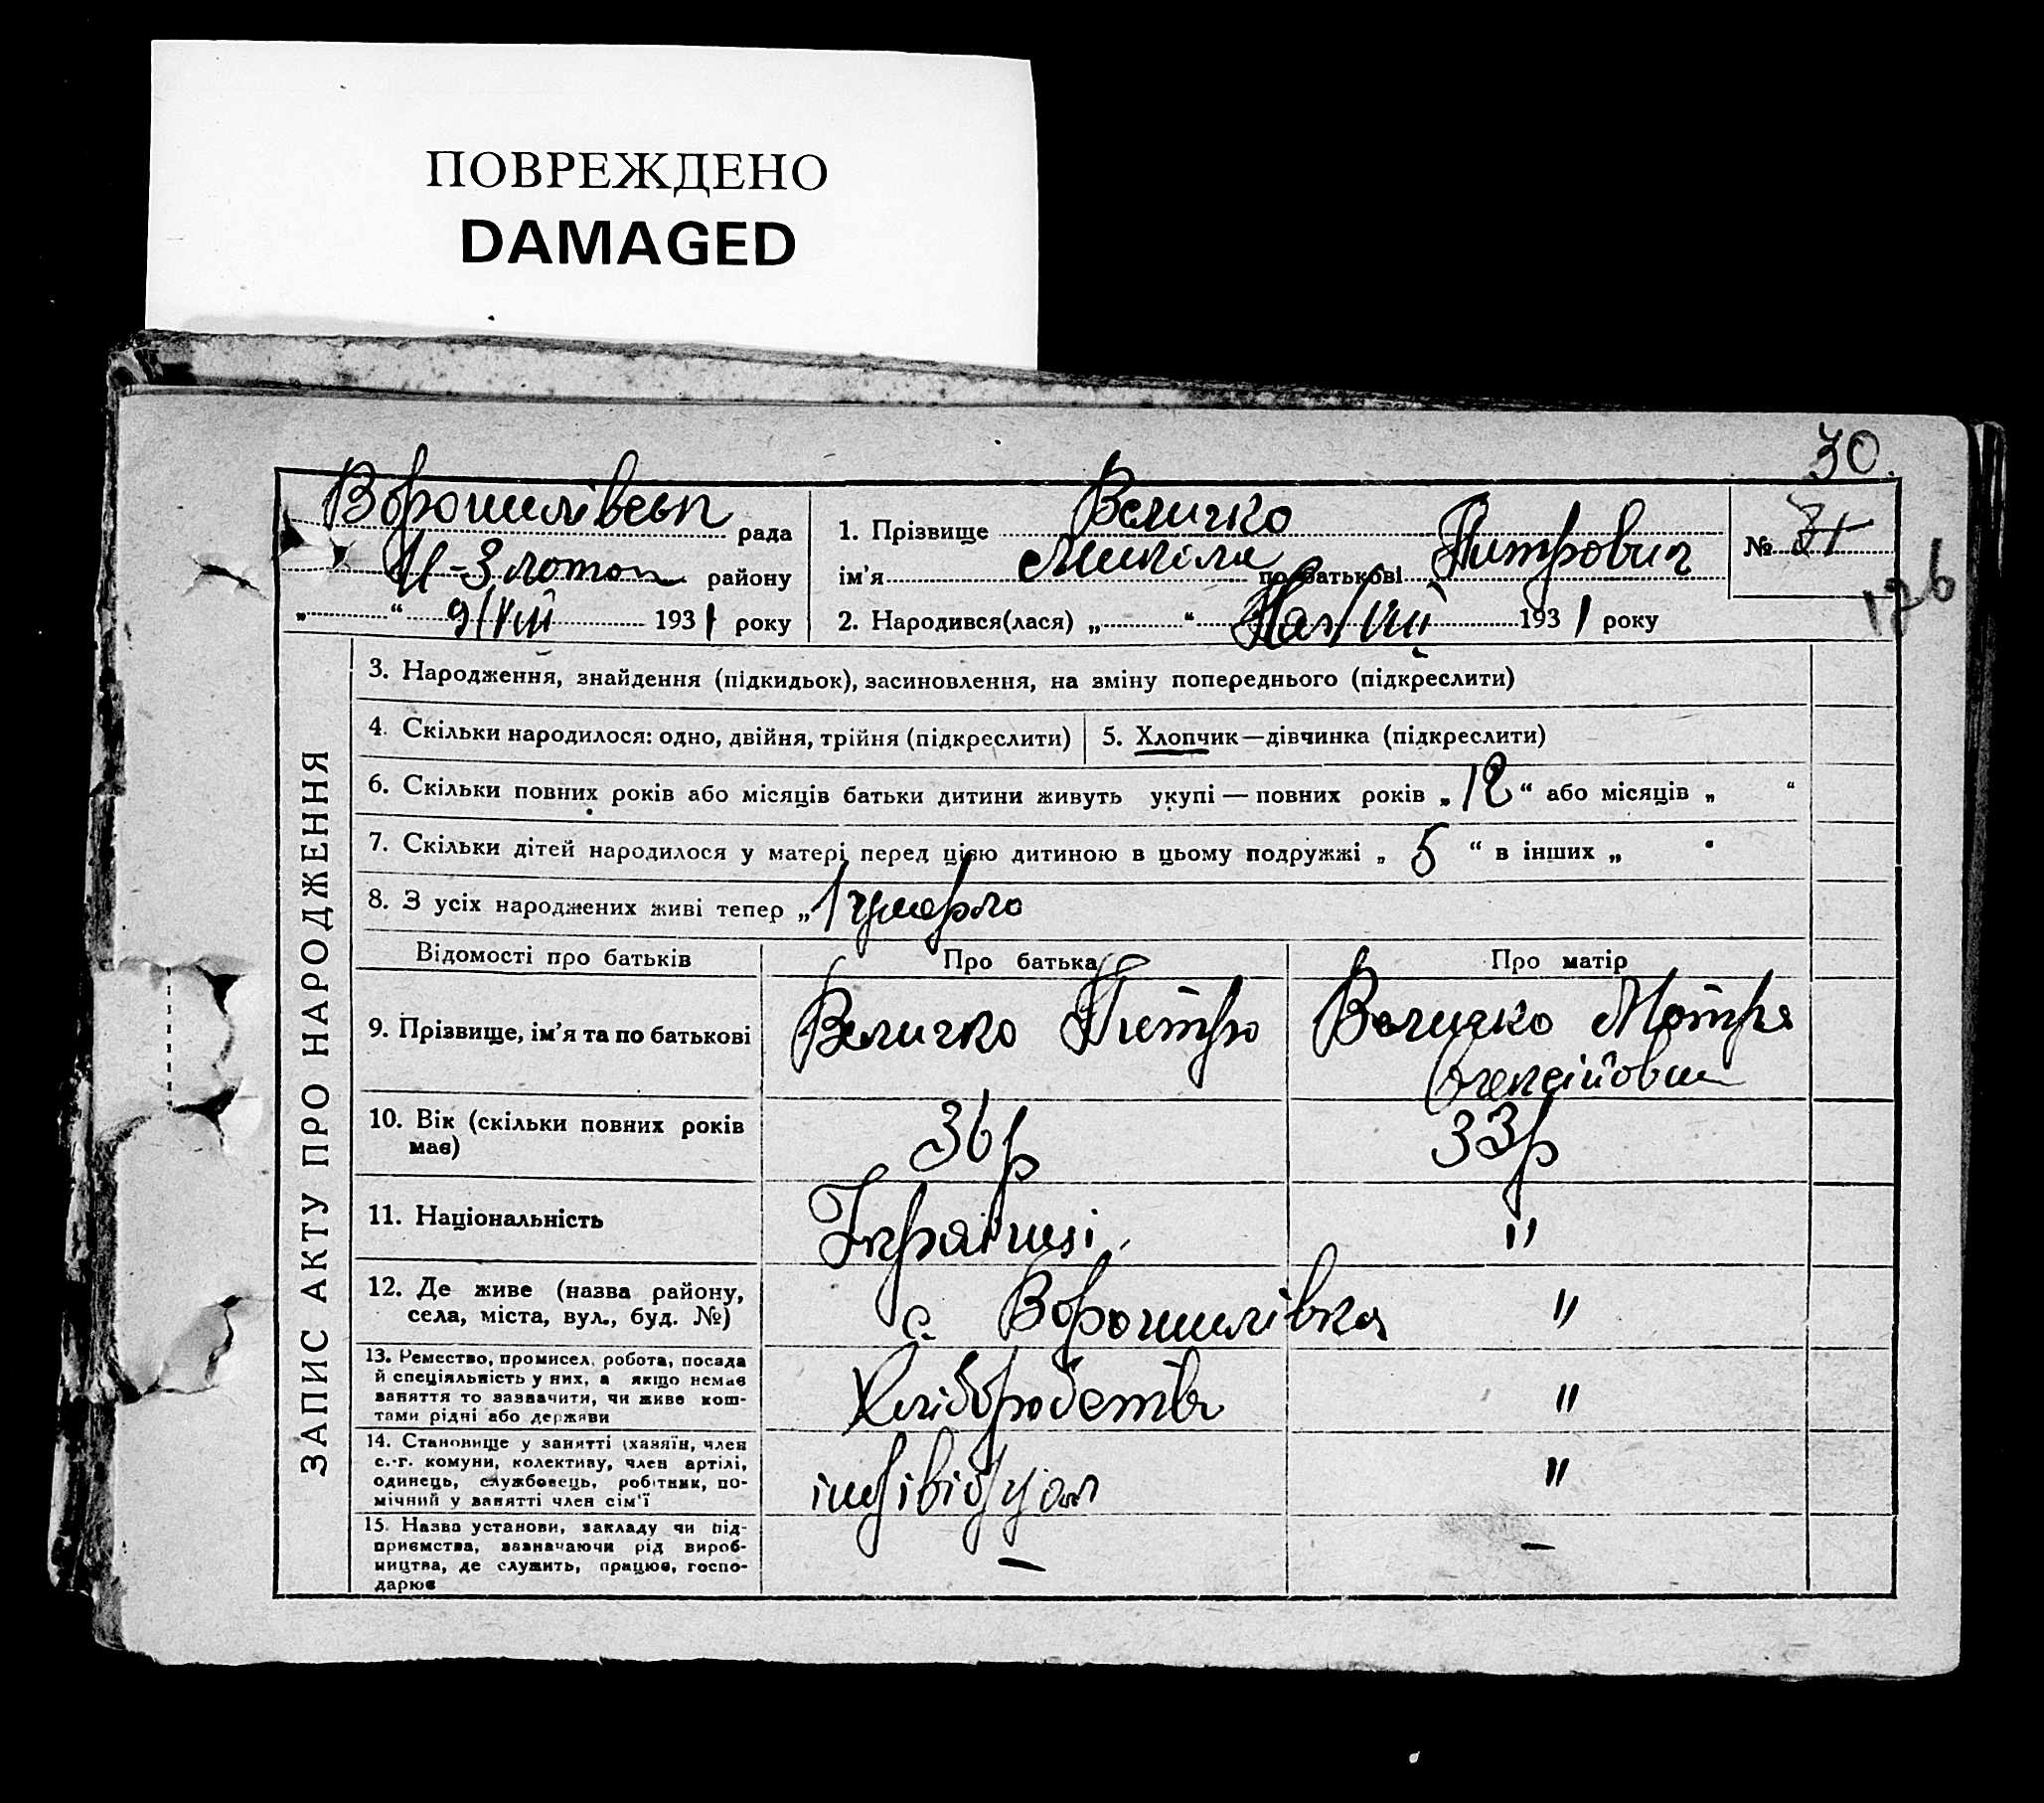 ПОВРЕЖДЕНО
DAMAGED
30.
Ворошилівськ рада
Н-Злотоп району
„ “ 9/VIII 1931 року
1. Прізвище Величко
ім’я Микіла по батькові Питрович
№ 31
126
2. Народився(лася) „ “ VIII 1931 року
ЗАПИС АКТУ ПРО НАРОДЖЕННЯ
3. Народження, знайдення (підкидьок), засиновлення, на зміну попереднього (підкреслити)
4. Скільки народилося: одно, двійня, трійня (підкреслити)
5. Хлопчик—дівчинка (підкреслити)
6. Скільки повних років або місяців батьки дитини живуть укупі — повних років „12“ або місяців „ “
7. Скільки дітей народилося у матері перед цією дитиною в цьому подружжі „ 5 “ в інших „ “
8. З усіх народжених живі тепер „ 1 умерло
Відомості про батьків
Про батька
Про матір
9. Прізвище, ім’я та по батькові
Величко Питро
Величко Мотря
Олексійовна
10. Вік (скільки повних років
має)
36р
33р
11. Національність
Українці
"
12. Де живе (назва району,
села, міста, вул., буд. №)
с. Ворошилівка
"
13. Ремество, промисел, робота, посада
й спеціяльність у них, а якщо немає
заняття то зазначити, чи живе кош-
тами рідні або держави
Хліборобств
"
14. Становище у занятті (хазяїн, член
с.-г. комуни, колективу, член артілі,
одинець, службовець, робітник, по-
мічний у занятті член сім’ї
індівідуал
"
15. Назва установи, закладу чи під-
приємства, зазначаючи рід вироб-
ництва, де служить, працює, госпо-
дарює
—
—